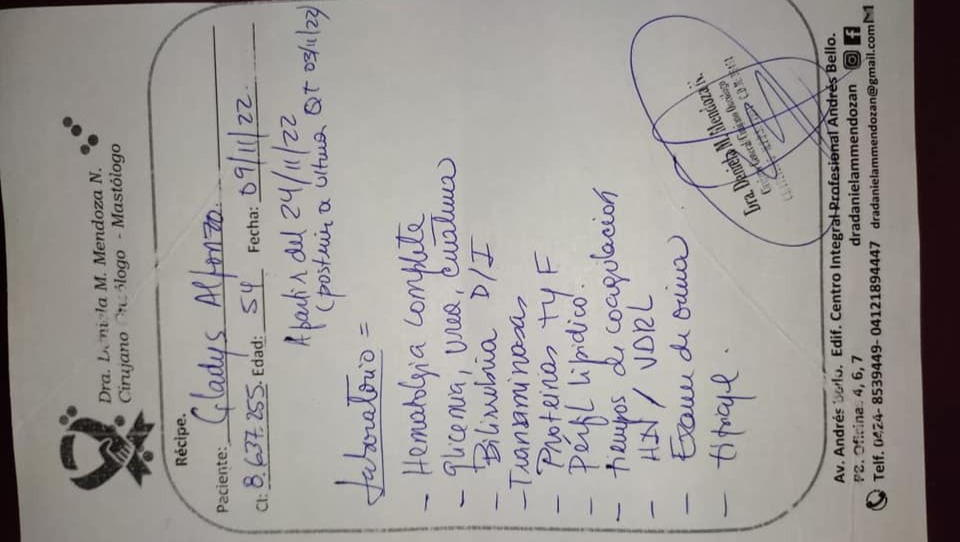 Dra. Daniela M. Mendoza N.
Cirujano Oncólogo - Mastólogo
Récipe.
Paciente: Gladys Alfonzo.
CI: 8.637.255. Edad: 54 Fecha: 09/11/22.
A partir del 24/11/22
(posterior a ultima QT 03/11/22)
Laboratorio =
- Hematologia completa
- glicemia, urea, creatinina
- Bilirrubina D/I
- Transaminasas
- Proteinas T y F
- Perfil lipidico.
- Tiempos de coagulación
- HIV / VDRL
- Examen de orina
Dra. Daniela M. Mendoza N.
Av. Andrés Bello. Edif. Centro Integral Profesional Andrés Bello.
P2. Oficina: 4, 6, 7
dradanielammendozan
Telf. 0424- 8539449- 04121894447
dradanielammendozan@gmail.com